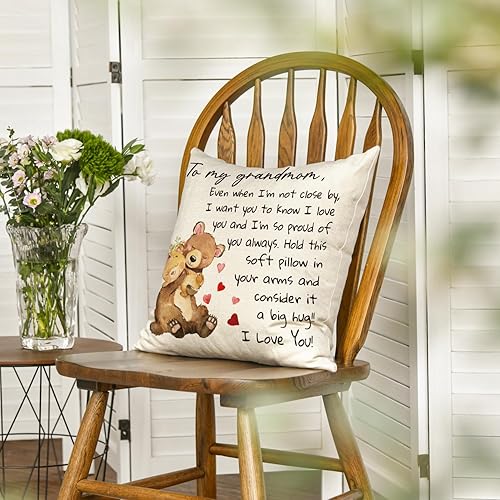 To my grandmom,
Even when I'm not close by,
I want you to know I love
you and I'm so proud of
you always. Hold this
soft pillow in
your arms and
consider it
a big hug!!
I Love You!